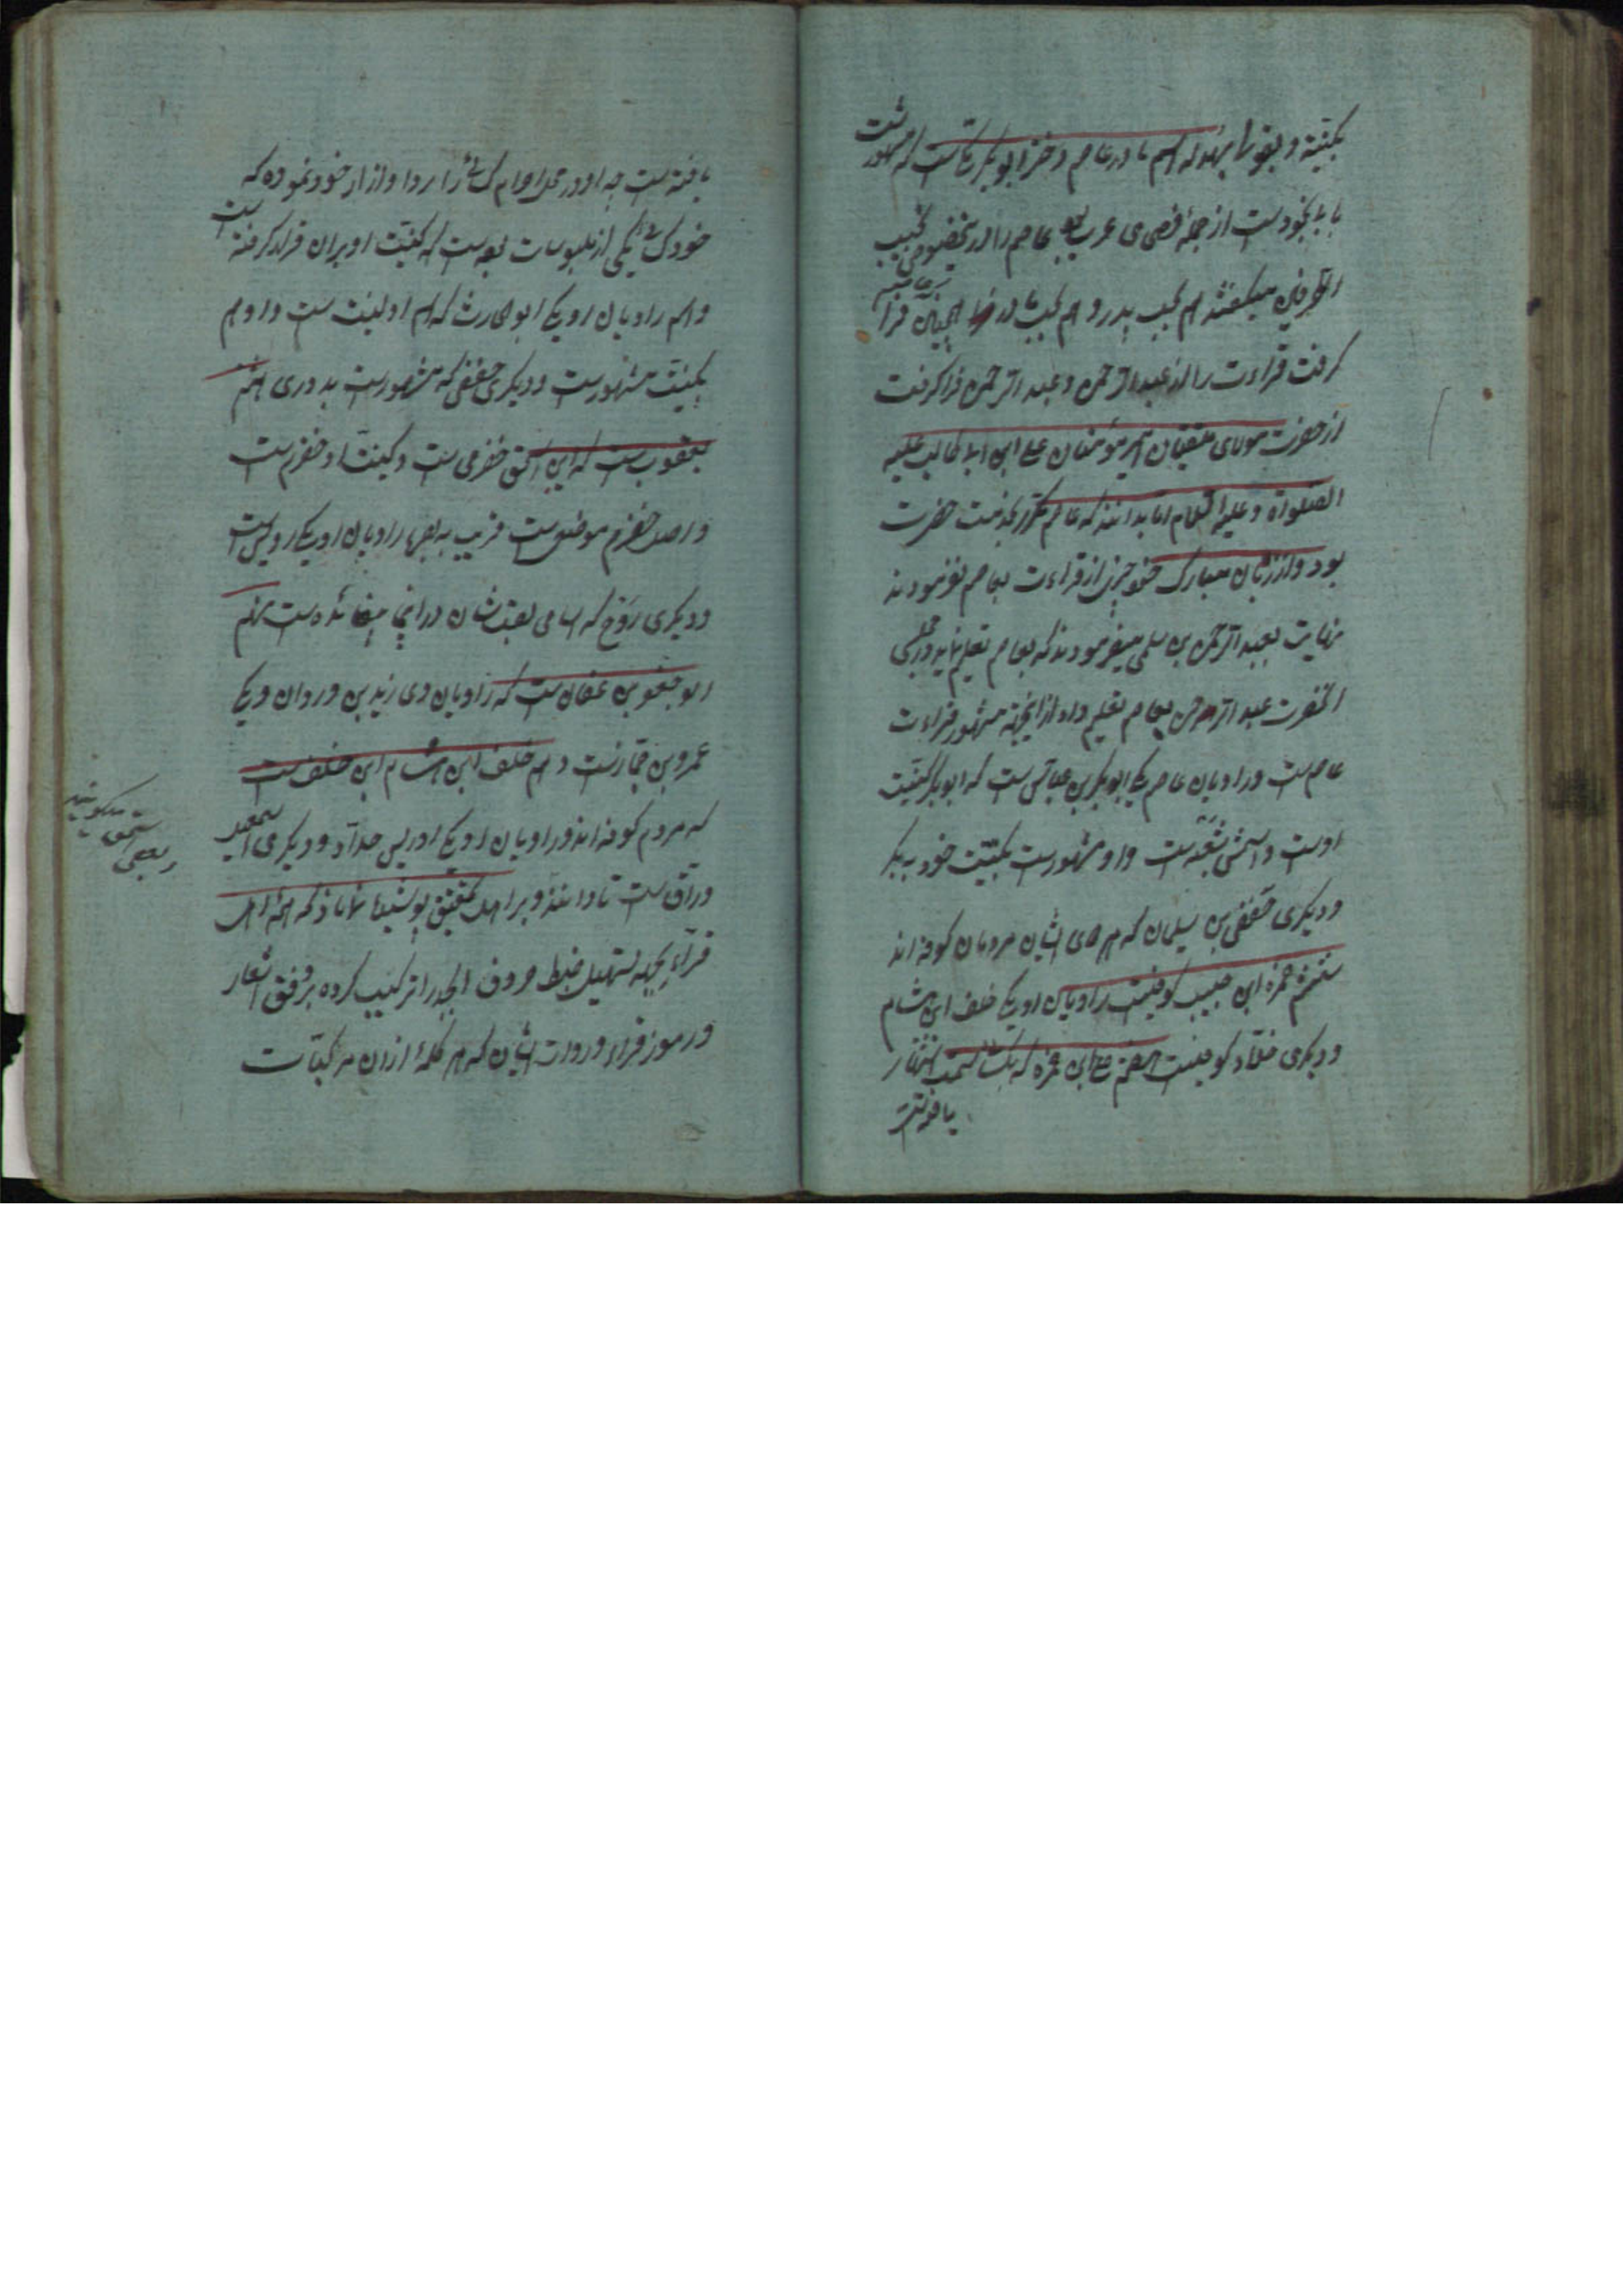 بکنیة و بقولی بهدله اسم مادر عاصم دختر ابوبکر است که مشهور شد
با بخود است از جمله فصحای عرب عاصم را در نجیب
الطرفین میگفتند هم نجیب پدر و هم نجیب مادر فرا
گرفت قراءت را از عبد الرحمن و عبد الرحمن فرا گرفت
از حضرت مولای متقیان امیر مؤمنان علی ابن ابی طالب علیه
الصلواة و علیه السلام اما بدانند که عاصم مکرر بخدمت حضرت
بود و از زبان مبارک خود چیزی از قراءت بعاصم نفرمودند
نهایت بعبد الرحمن بن سلمی میفرمودند که بعاصم تعلیم نماید در مجلس
آنحضرت عبد الرحمن بعاصم تعلیم داد از اینجهة مشهور قراءت
عاصم است و راویان عاصم یکی ابوبکر بن عیاش است که ابوبکر کنیت
اوست و اسمش شعبه است و او مشهور است بکنیت خود به بکر
و دیگری حفص بن سلیمان که هر دوی ایشان مردمان کوفه اند
ششم حمزه ابن حبیب کوفیست راویان او یکی خلف ابن هشام
و دیگری خلاد کوفیست هفتم علی ابن حمزه که بکسائی اشتهار
یافته است
یافته است چه او در محل احرام کسائی را ردا و ازار خود نموده که
خود کسائی یکی از ملبوسات بوده است که کنیت او بران قرار گرفته است
و اسم راویان او یکی ابو الحارث که اسم او لیث است و او هم
بکنیت مشهور است و دیگری حفص که مشهور است بدوری هشتم
یعقوب است که ابن اسحق حضرمی است و کنیت او حضرم است
و اصل حضرم موضعی است قریب به بصره راویان او یکی رویس است
و دیگری روح که اسامی لقبشان در اینجا شده است نهم
ابو جعفر بن عفان است که راویان وی زید بن وردان و یکی
عمرو بن جماز است دهم خلف ابن هشام ابن خلف است
که مردم کوفه اند و راویان او یکی ادریس حداد و دیگری سعید
وراق است تا دانند و بر اهل تحقیق پوشیده نماناد که ائمه اهل
قراء بجهة تسهیل ضبط حروف ابجد را ترکیب کرده بر وفق اشعار
و رموز قراء و روات ایشان که هر کلمه از ان مرکبات
و بعضی
اسحق
میگویند